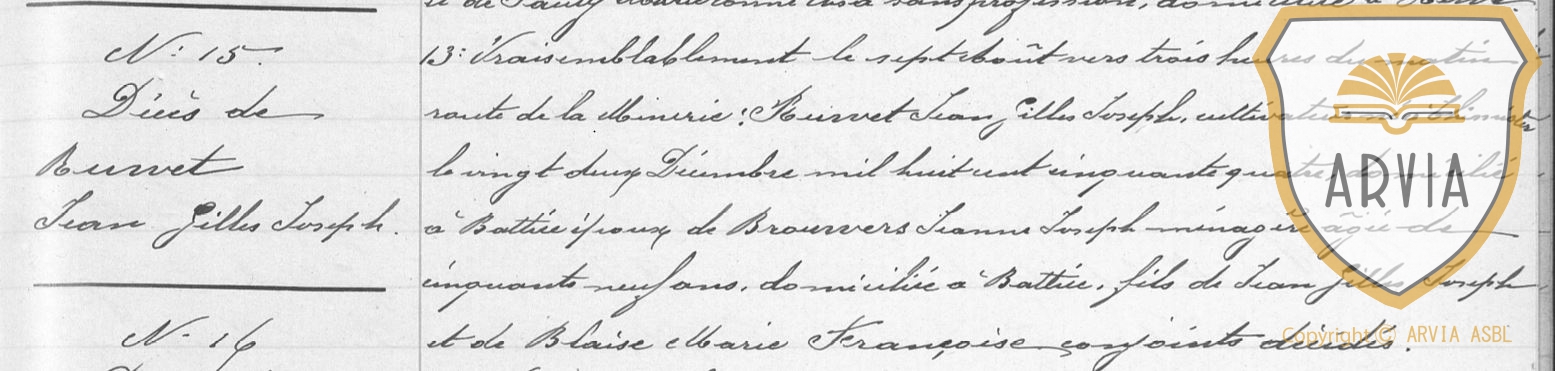 et de Pauly Marie
sans profession, domiciliée à
N: 15.
Décès de
Rurvet
Jean Gilles Joseph.
N: 16
13: Vraisemblablement le sept Août vers trois heures du matin
route de la Minerie: Rurvet Jean Gilles Joseph, cultivateur né à Thimister
le vingt deux Décembre mil huit cent cinquante quatre, domicilié
à Battice époux de Brouwers Jeanne Joseph ménagère âgée de
cinquante neuf ans, domiciliée à Battice, fils de Jean Gilles Joseph
et de Blaise Marie Françoise conjoints décédés.
ARVIA
Copyright © ARVIA ASBL